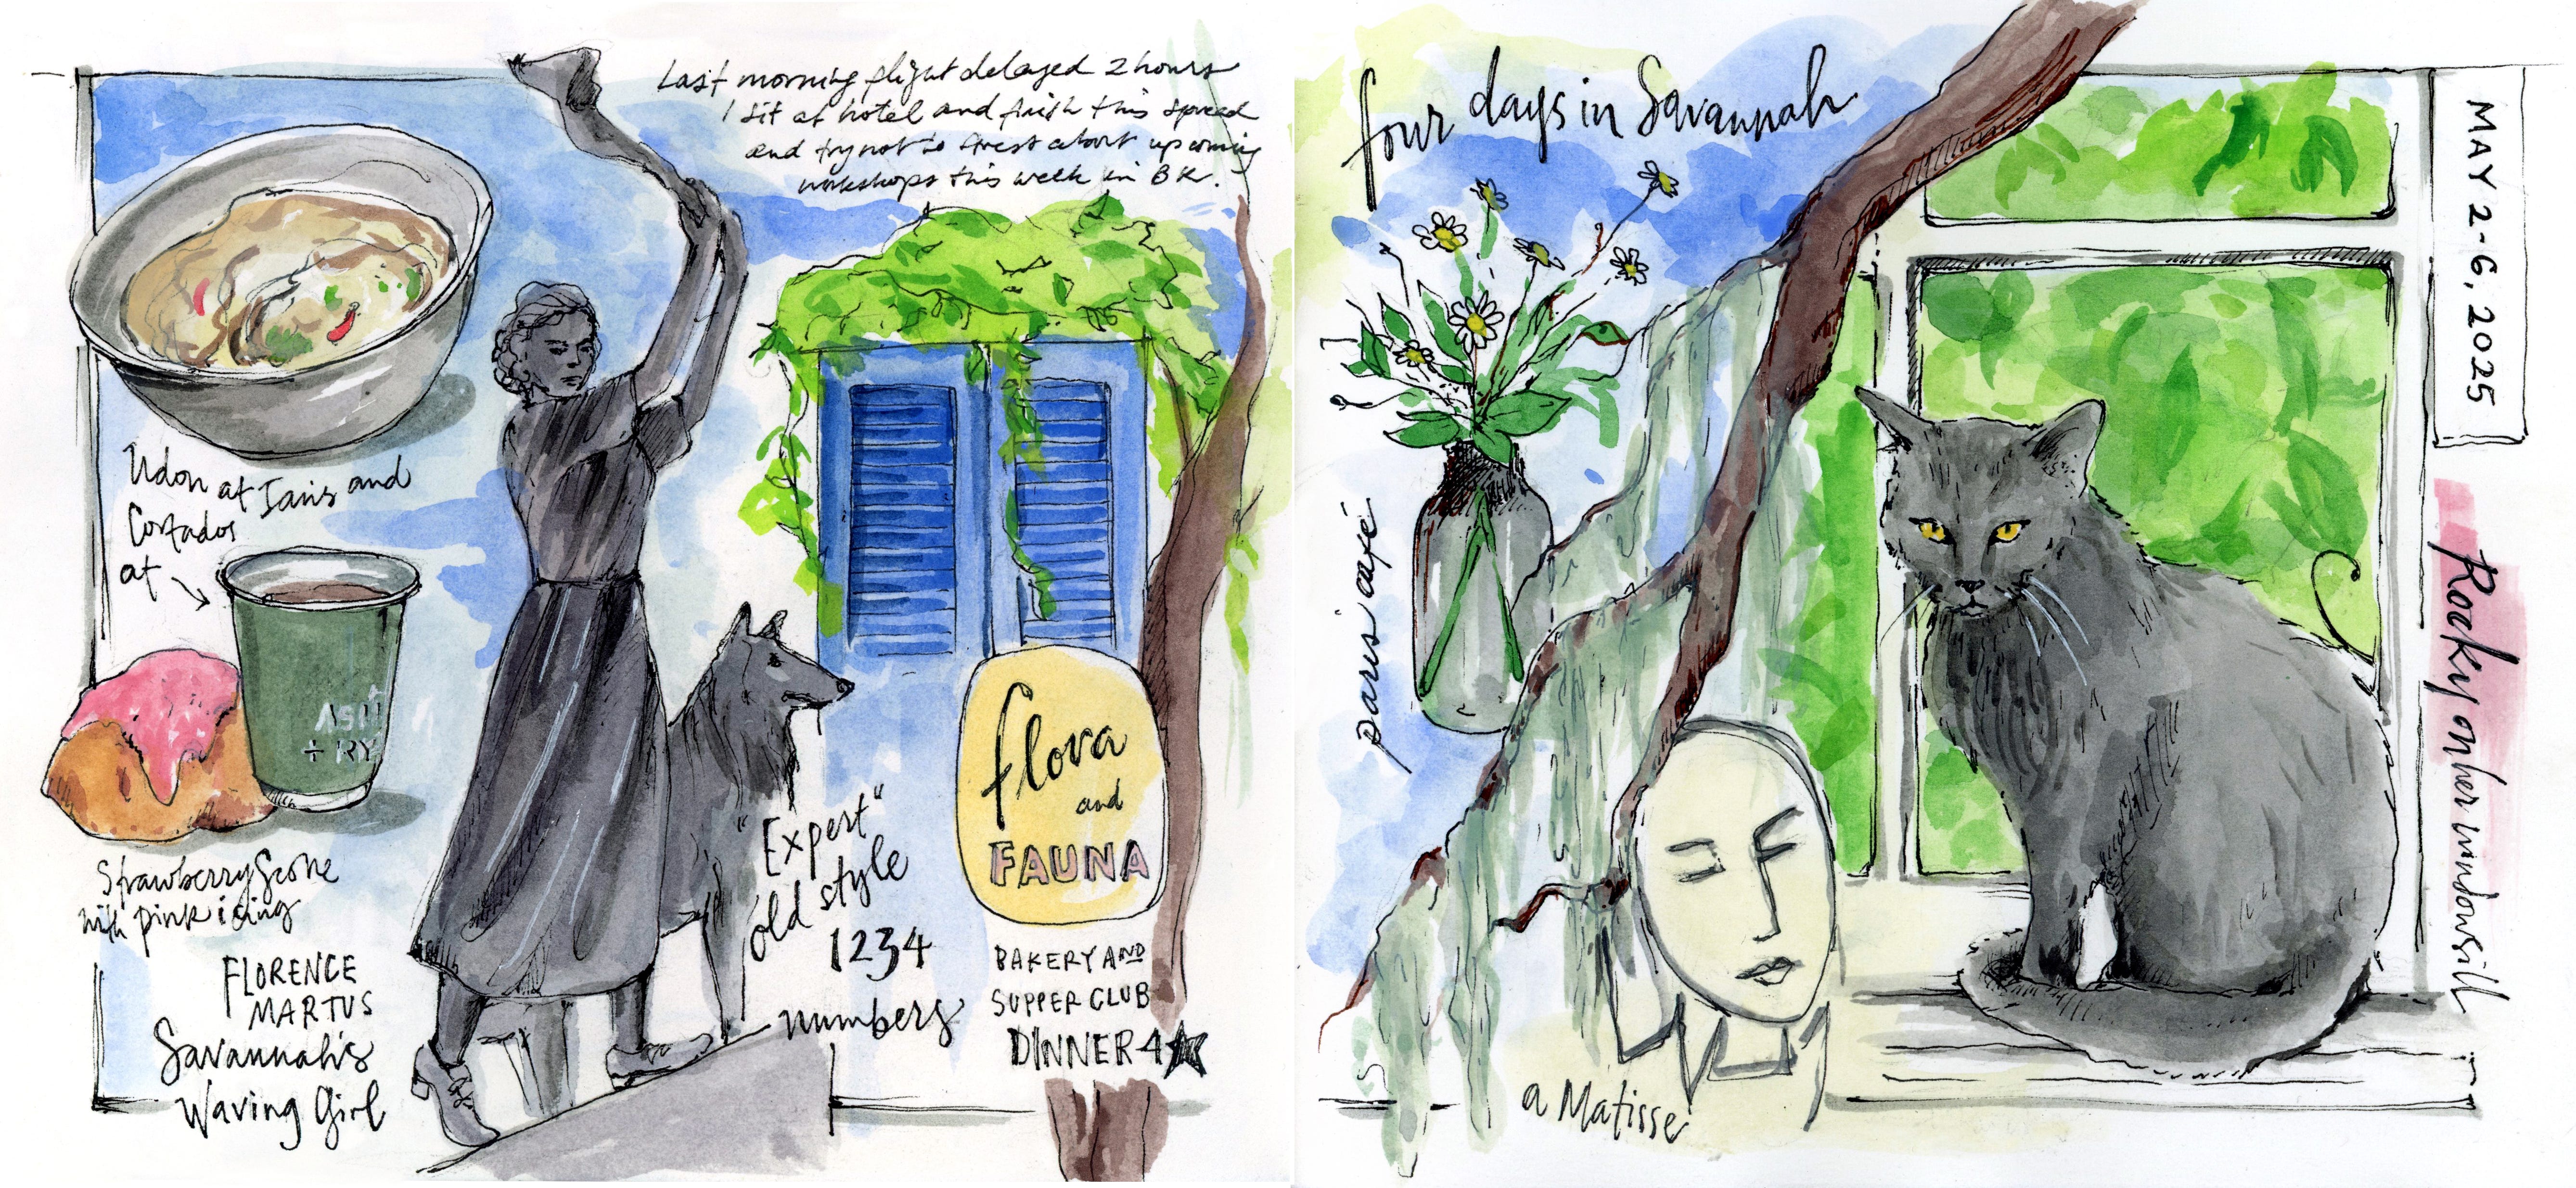 Last morning flight delayed 2 hours
I sit at hotel and finish this spread
and try not to stress about upcoming
workshops this week in BK.
Udon at Ians and
Cortados
at
ASH
+ RY
Strawberry Scone
with pink icing
FLORENCE
MARTUS
Savannah's
Waving Girl
"Expert"
old style
1234
numbers
flora
and
FAUNA
BAKERY AND
SUPPER CLUB
DINNER 4★
four days in Savannah
paris café
a Matisse
MAY 2-6, 2025
Rocky on her windowsill